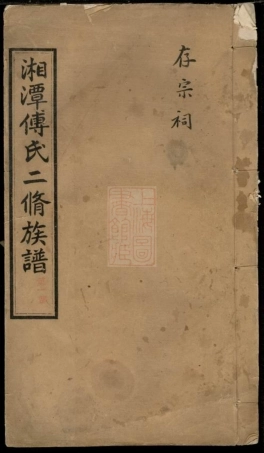 存宗祠
湘潭傅氏二脩族譜
上海圖書館藏